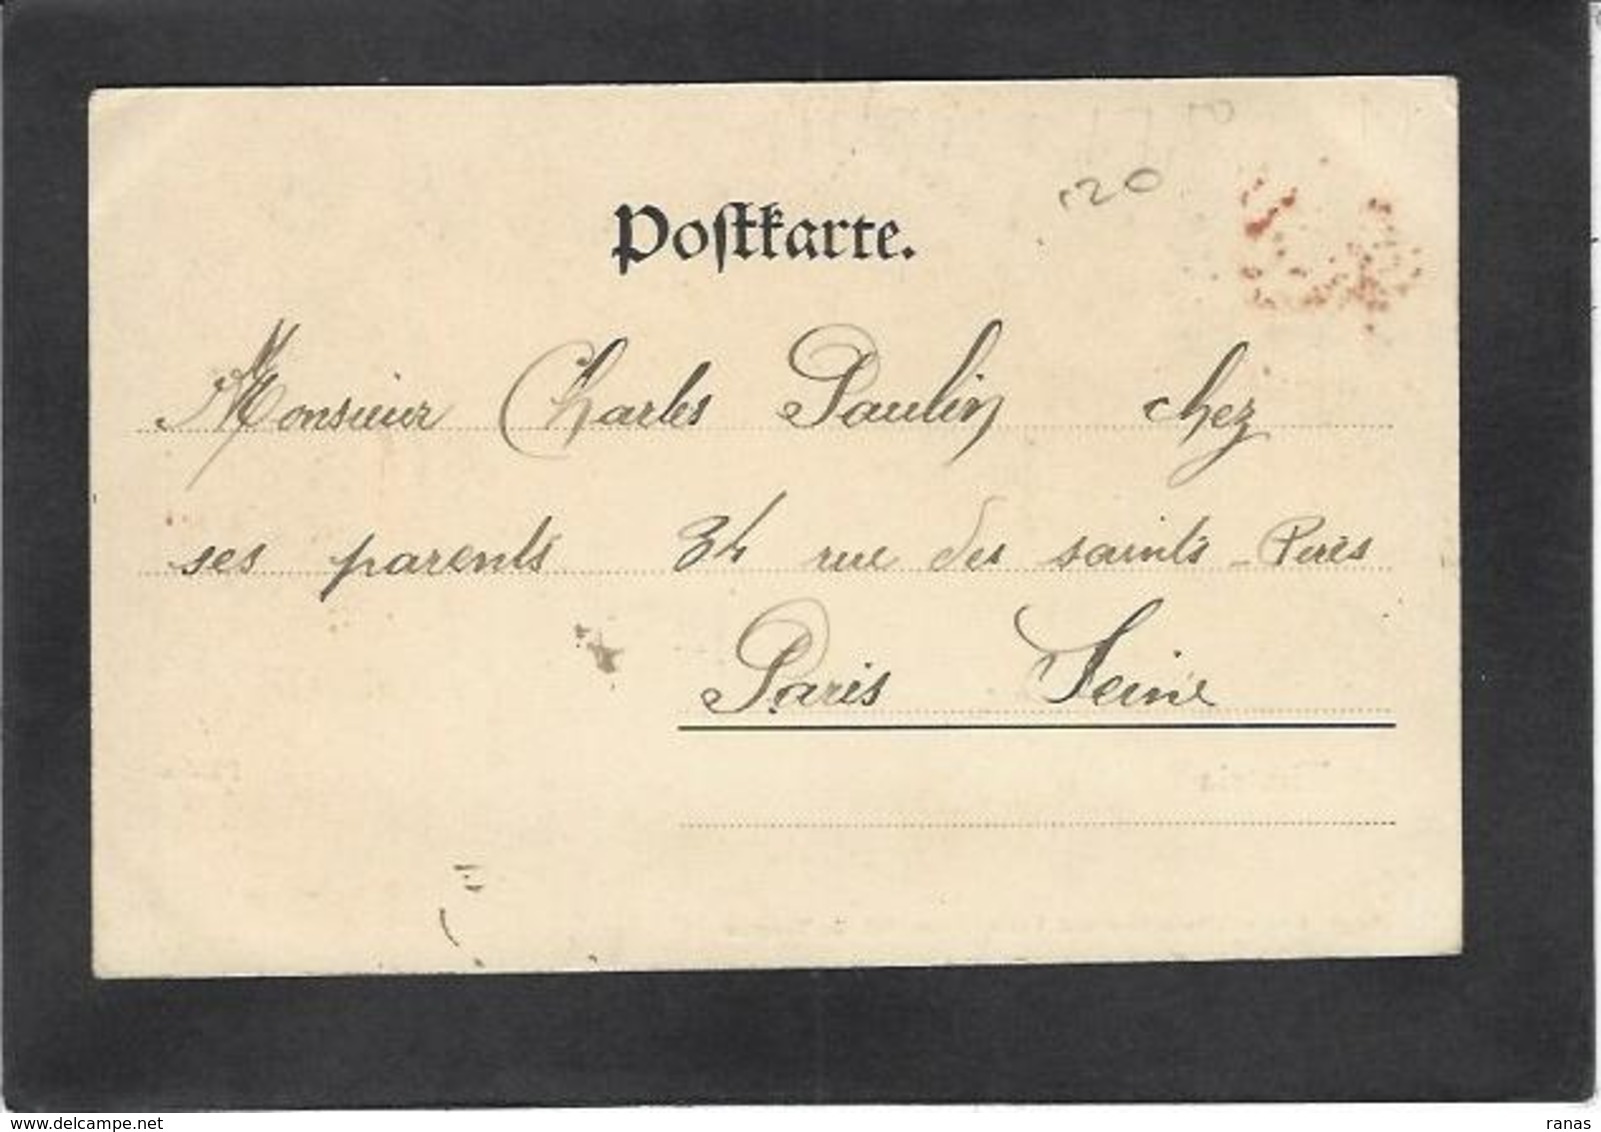 120
Postkarte.
Monsieur Charles Paulin chez
ses parents 34 rue des saints - Pères
Paris Seine
www.delcampe.net
ranas